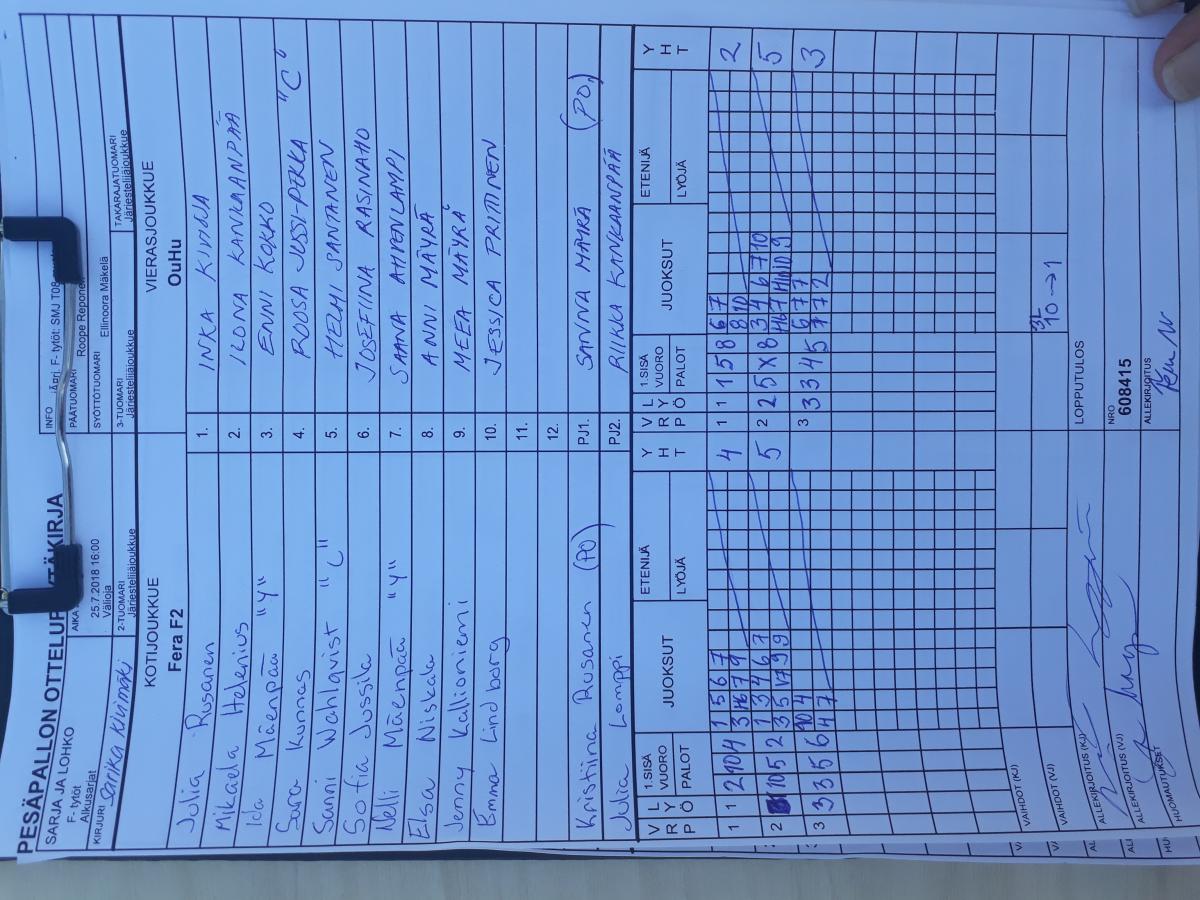 PESÄPALLON OTTELUPÖYTÄKIRJA
SARJA JA LOHKO
F- tytöt
Alkusarjat
AIKA
25.7.2018 16:00
Välioja
INFO F- tytöt: SMJ T08
PÄÄTUOMARI
Roope Reponen
SYÖTTÖTUOMARI
Ellinoora Mäkelä
KIRJURI Sarika Kivimäki
2-TUOMARI
Järjestelijäjoukkue
3-TUOMARI
Järjestelijäjoukkue
TAKARAJATUOMARI
Järjestelijäjoukkue
KOTIJOUKKUE
Fera F2
VIERASJOUKKUE
OuHu
Julia Rusanen 1. INKA KIVIJA
Mikaela Helenius 2. ILONA KANKAANPÄÄ
Ida Mäenpää "Y" 3. ENNI KOKKO
Sara Kunnas 4. ROOSA JUSSI-PEKKA "C"
Sanni Wahlqvist "C" 5. HELMI SANTANEN
Sofia Jussila 6. JOSEFIINA RASINAHO
Nelli Mäenpää "Y" 7. SAANA AHVENLAMPI
Elsa Niskala 8. ANNI MÄYRÄ
Jenny Kallioniemi 9. MEEA MÄYRÄ
Emma Lindborg 10. JESSICA PRITTINEN
11.
12.
Kristiina Rusanen (PO) PJ1. SANNA MÄYRÄ (PO)
Julia Lomppi PJ2. RIIKKA KANKAANPÄÄ
V R P L Y Ö 1.SISÄ VUORO PALOT JUOKSUT ETENIJÄ LYÖJÄ Y H T V R P L Y Ö 1.SISÄ VUORO PALOT JUOKSUT ETENIJÄ LYÖJÄ Y H T
1 1 2 10 4 1 5 6 7 4 1 1 1 5 8 6 7 2
3 H6 7 9 8 10
2 10 5 2 1 3 4 6 7 5 2 2 5 X 8 3 4 6 7 10 5
3 5 V7 9 9 H6 7 H10 10 9
3 3 3 5 6 10 4 3 3 3 4 5 6 7 7 3
4 7 7 7 2
VAIHDOT (KJ)
VAIHDOT (VJ)
3L
10 → 1
LOPPUTULOS
ALLEKIRJOITUS (KJ)
ALLEKIRJOITUS (VJ)
NRO
608415
ALLEKIRJOITUS
HUOMAUTUKSET